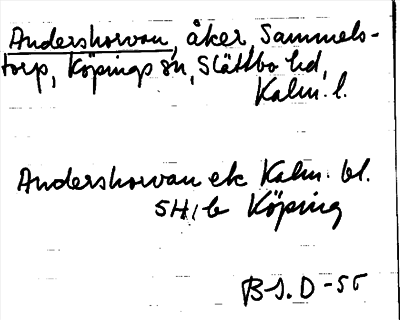 Andershorvan, åker, Sammels-
torp, Köpings sn, Slättbo hd,
Kalm. l.
Andershorvan ek Kalm. bl.
5H, b Köping
B-S.D -55